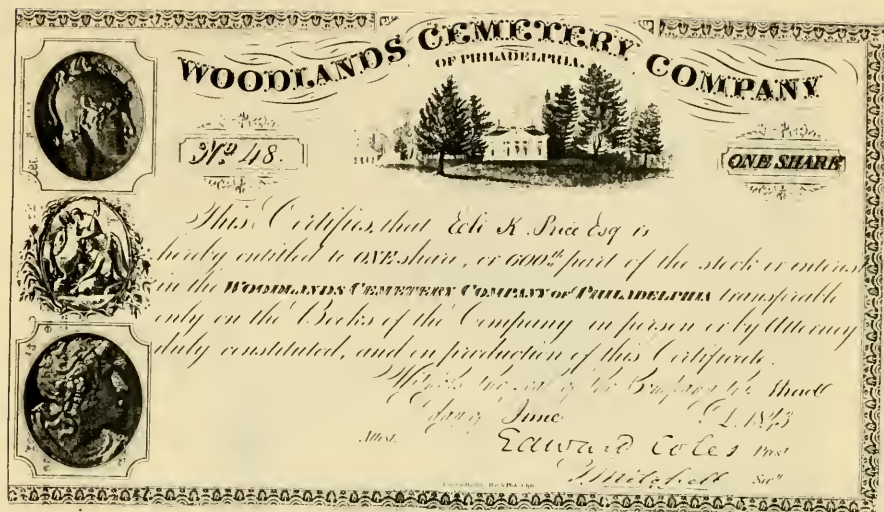 WOODLANDS CEMETERY COMPANY
OF PHILADELPHIA.
No 48.
ONE SHARE
This Certifies, that Eli K. Price Esq is
hereby entitled to ONE share, or 600th part of the stock or interest
in the WOODLANDS CEMETERY COMPANY OF PHILADELPHIA transferable
only on the Books of the Company in person or by Attorney
duly constituted, and on production of this Certificate.
Witness the seal of the Company the third
day of June A.D. 1843
Attest.
Edward Coles Prest
Mitchell Secy